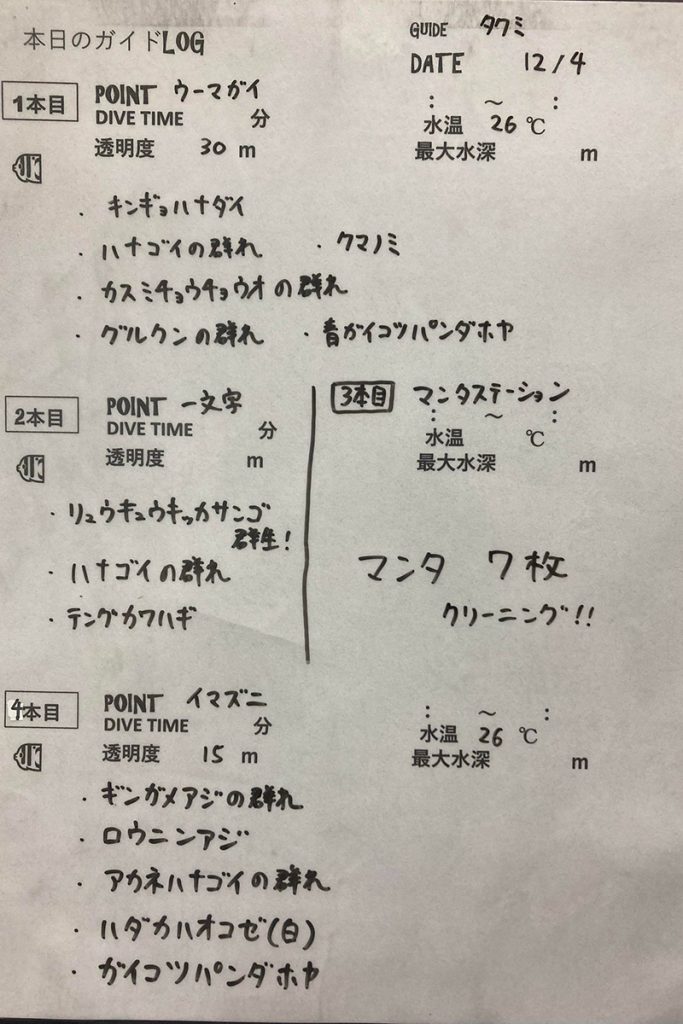 本日のガイドLOG
GUIDE タクミ
DATE 12/4
1本目
POINT ウーマガイ
DIVE TIME 分
透明度 30 m
: ～ :
水温 26 ℃
最大水深 m
・キンギョハナダイ
・ハナゴイの群れ ・クマノミ
・カスミチョウチョウオの群れ
・グルクンの群れ ・青ガイコツパンダホヤ
2本目
POINT 一文字
DIVE TIME 分
透明度 m
・リュウキュウキッカサンゴ
群生!
・ハナゴイの群れ
・テングカワハギ
3本目 マンタステーション
: ～ :
水温 ℃
最大水深 m
マンタ 7枚
クリーニング!!
4本目
POINT イマズニ
DIVE TIME 分
透明度 15 m
: ～ :
水温 26 ℃
最大水深 m
・ギンガメアジの群れ
・ロウニンアジ
・アカネハナゴイの群れ
・ハダカハオコゼ(白)
・ガイコツパンダホヤ